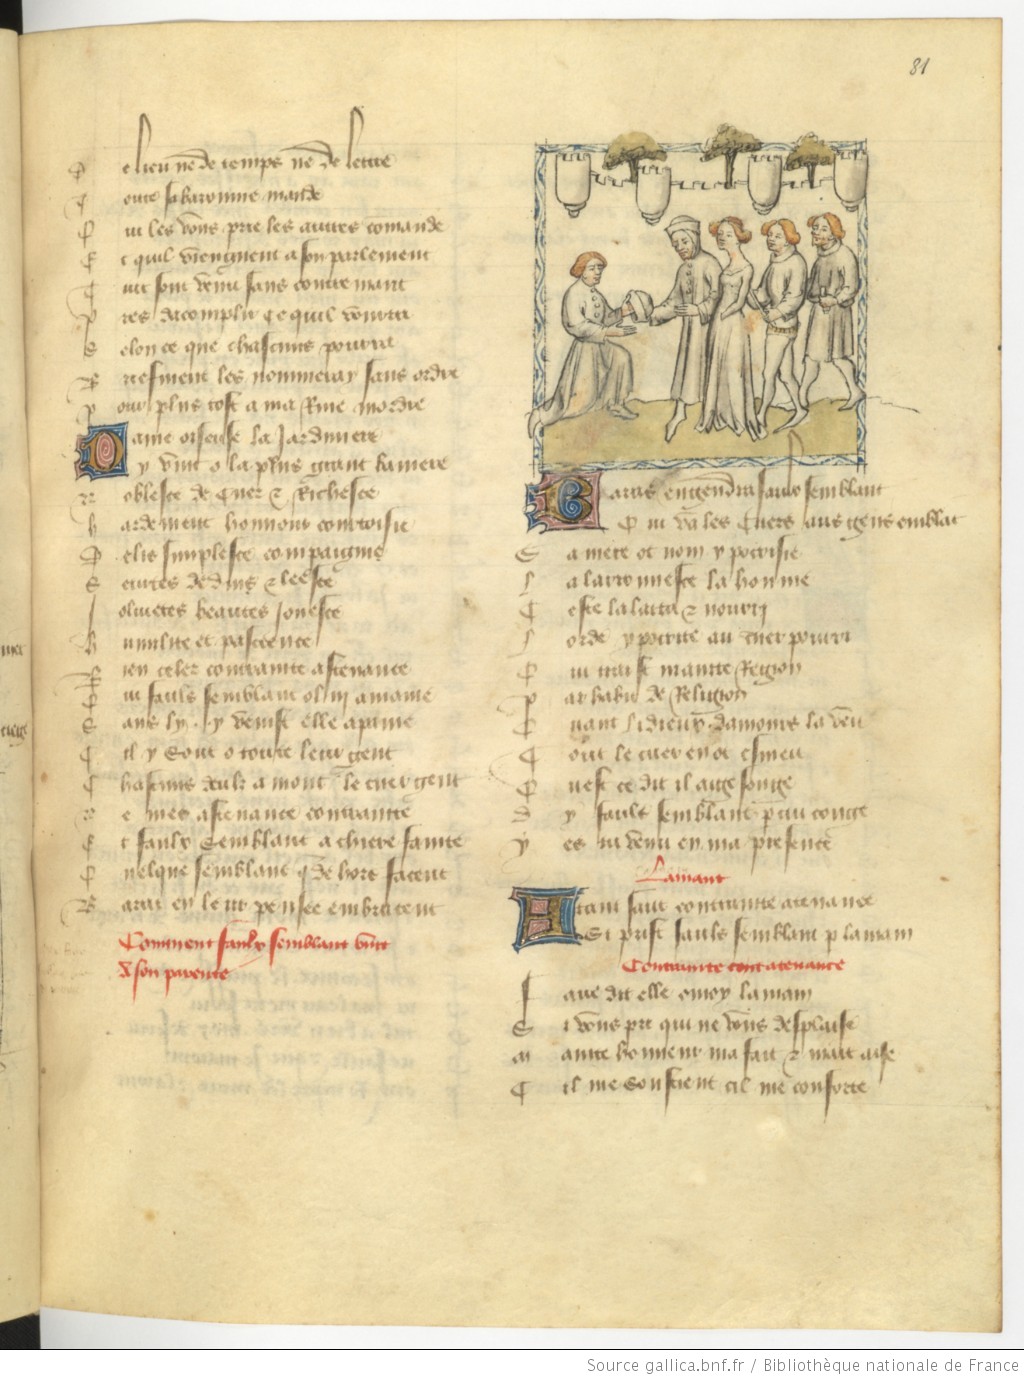 81
De lieu ne de temps ne de lettre
Toute sa baronnie mande
Qui les vous prie les autres comande
Et quil viengnent a son parlement
Tuit sont venu sans contremant
Pres dacomplir ce quil vourra
Selon ce que chascuns pourra
Briefment les nommeray sans ordre
Pour plus tost a ma rime mordre
Dame oiseuse la Jardiniere
y vint o la plus grant baniere
Noblesce de Cuer z Richesce
hardement honnour courtoisie
Delit simplesce compaignie
Seurtes deduis z leesce
Jolivetes beautes Jonesce
humilite et pascience
Bien celer contrainte astenance
Qui fauls semblant o li amaine
Sans ly y venist elle a paine
Cil y sont o toute leur gent
Chascuns deulz a mont le cuer gent
Ne mes astenance contrainte
Et faulx Semblant a chiere fainte
Quelque semblant q de hors facent
Barat en leur pensee embracent
Comment faulx semblant vint
a son parente
Baras engendra faulx semblant
Qui va les Cuers aus gens emblant
Sa mere ot nom ypocrisie
La larronnesse la honnie
Ceste lalaita z nourri
Lorde ypocrite au cuer pourri
Qui traist mainte Region
Par habit de Religion
Quant li dieux damours la veu
Tout le cuer en ot esmeu
Quest ce dit il ai ge songe
dy faulz semblant p cui conge
yes tu venu en ma presence
Lamant
Atant saut contrainte atenance
Si prist fauls semblant p la main
Contrainte tint atenance
Sire dit elle o moy lamain
Si vous pri qui ne vous desplaise
mainte honneur ma fait z maint aise
Cil me soustient cil me conforte
Source gallica.bnf.fr / Bibliothèque nationale de France